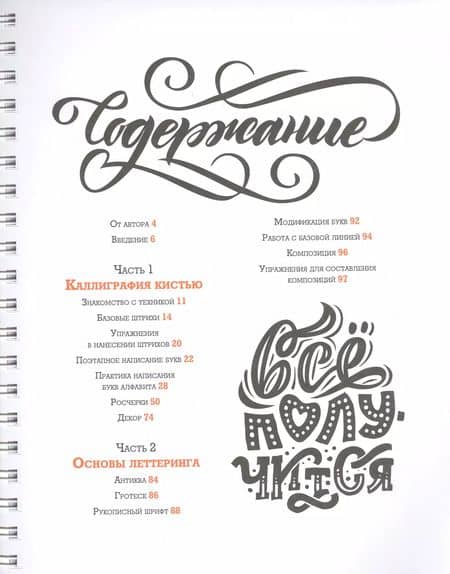 Содержание
От автора 4
Введение 6
Часть 1
Каллиграфия кистью
Знакомство с техникой 11
Базовые штрихи 14
Упражнения
в нанесении штрихов 20
Поэтапное написание букв 22
Практика написания
букв алфавита 28
Росчерки 50
Декор 74
Часть 2
Основы леттеринга
Антиква 84
Гротеск 86
Рукописный шрифт 88
Модификация букв 92
Работа с базовой линией 94
Композиция 96
Упражнения для составления
композиций 97
Всё
полу-
чится